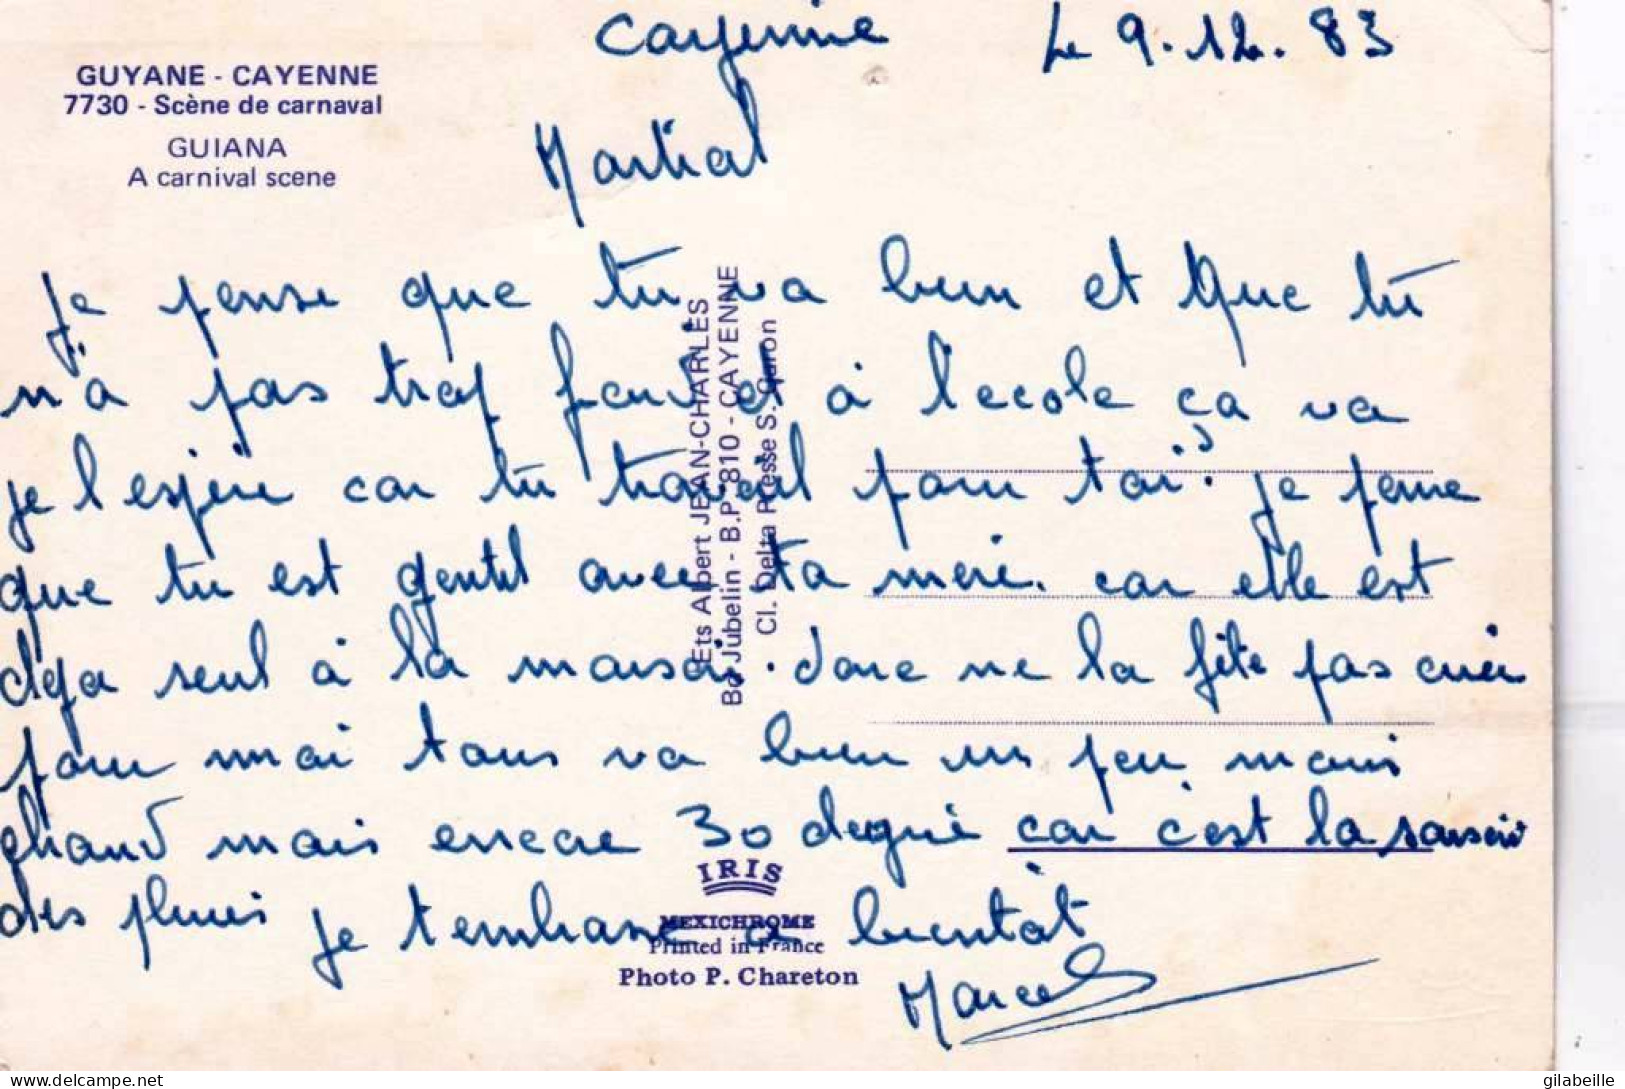 Cayenne Le 9.12.83
GUYANE - CAYENNE
7730 - Scène de carnaval
GUIANA
A carnival scene
Martial
je pense que tu va bien et que tu
n'a pas trop froid et à l'ecole ça va
je l'espère car tu travail pour toi. je pense
que tu est gentil avec ta mere. car elle est
deja seul à la maison. donc ne la fète pas
pour moi tous va bien un peu mois
chaud mais encore 30 degré car c'est la saison
des pluies je t'embrasse a bientôt
Marcel
Ets Albert JEAN-CHARLES
Bd Jubelin - B.P. 810 - CAYENNE
Cl. Delta Presse S. Guron
IRIS
MEXICHROME
Printed in France
Photo P. Chareton
gilabeille